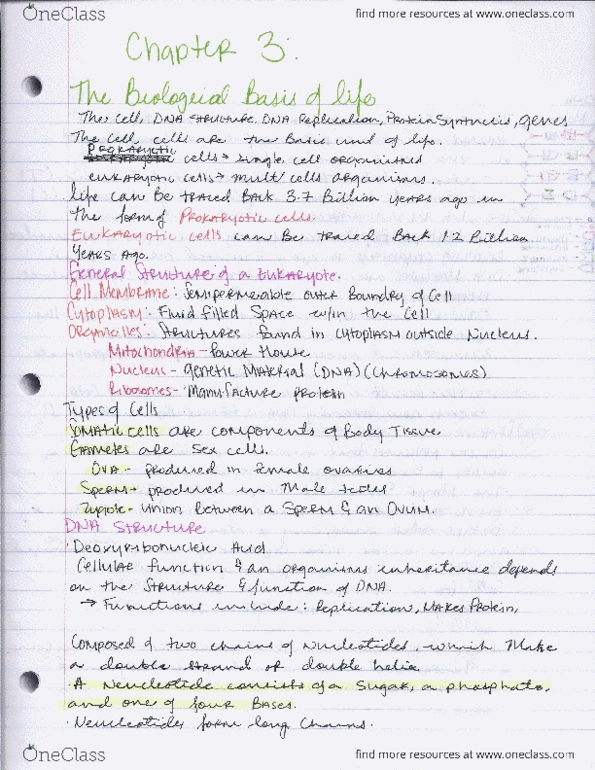 OneClass find more resources at www.oneclass.com
Chapter 3:
The Biologeial Basis of life
The Cell, DNA Structure, DNA Replication, Protein Synthesis, genes
The Cell, cells are the Basis unit of life.
PROKARYOTIC
cells → single cell organisms
eukaryotic cells → mult cells organisms.
life can be traced Back 3.7 Billion years ago in
The form of Prokaryotic cells.
Eukaryotic cells can be traced Back 1.2 Billion
Years Ago.
General Structure of a Eukaryote.
Cell Membrane: Semipermeable outer Boundry of Cell
Cytoplasm: Fluid filled Space w/in the Cell
Organelles: Structures found in cytoplasm outside Nucleus.
Mitochondria - Power House
Nucleus - genetic Material (DNA) (Chromosomes)
Ribosomes - Manufacture protein
Types of Cells
Somatic cells are components of Body Tissue
Gametes are Sex cells.
Ova - produced in female ovaries
Sperm - produced in Male testes
Zygote - union between a Sperm & an Ovum.
DNA Structure
· Deoxyribonucleic Acid
Cellular function & an organisms inheritance depends
on the Structure & function of DNA.
→ Functions include: Replication, Makes Protein,
Composed of two chains of Nucleotides, which Make
a double strand or double helix
· A Neucleotide consists of a Sugar, a phosphate,
and one of four Bases.
· Neucleotides form long Chains.
OneClass find more resources at www.oneclass.com